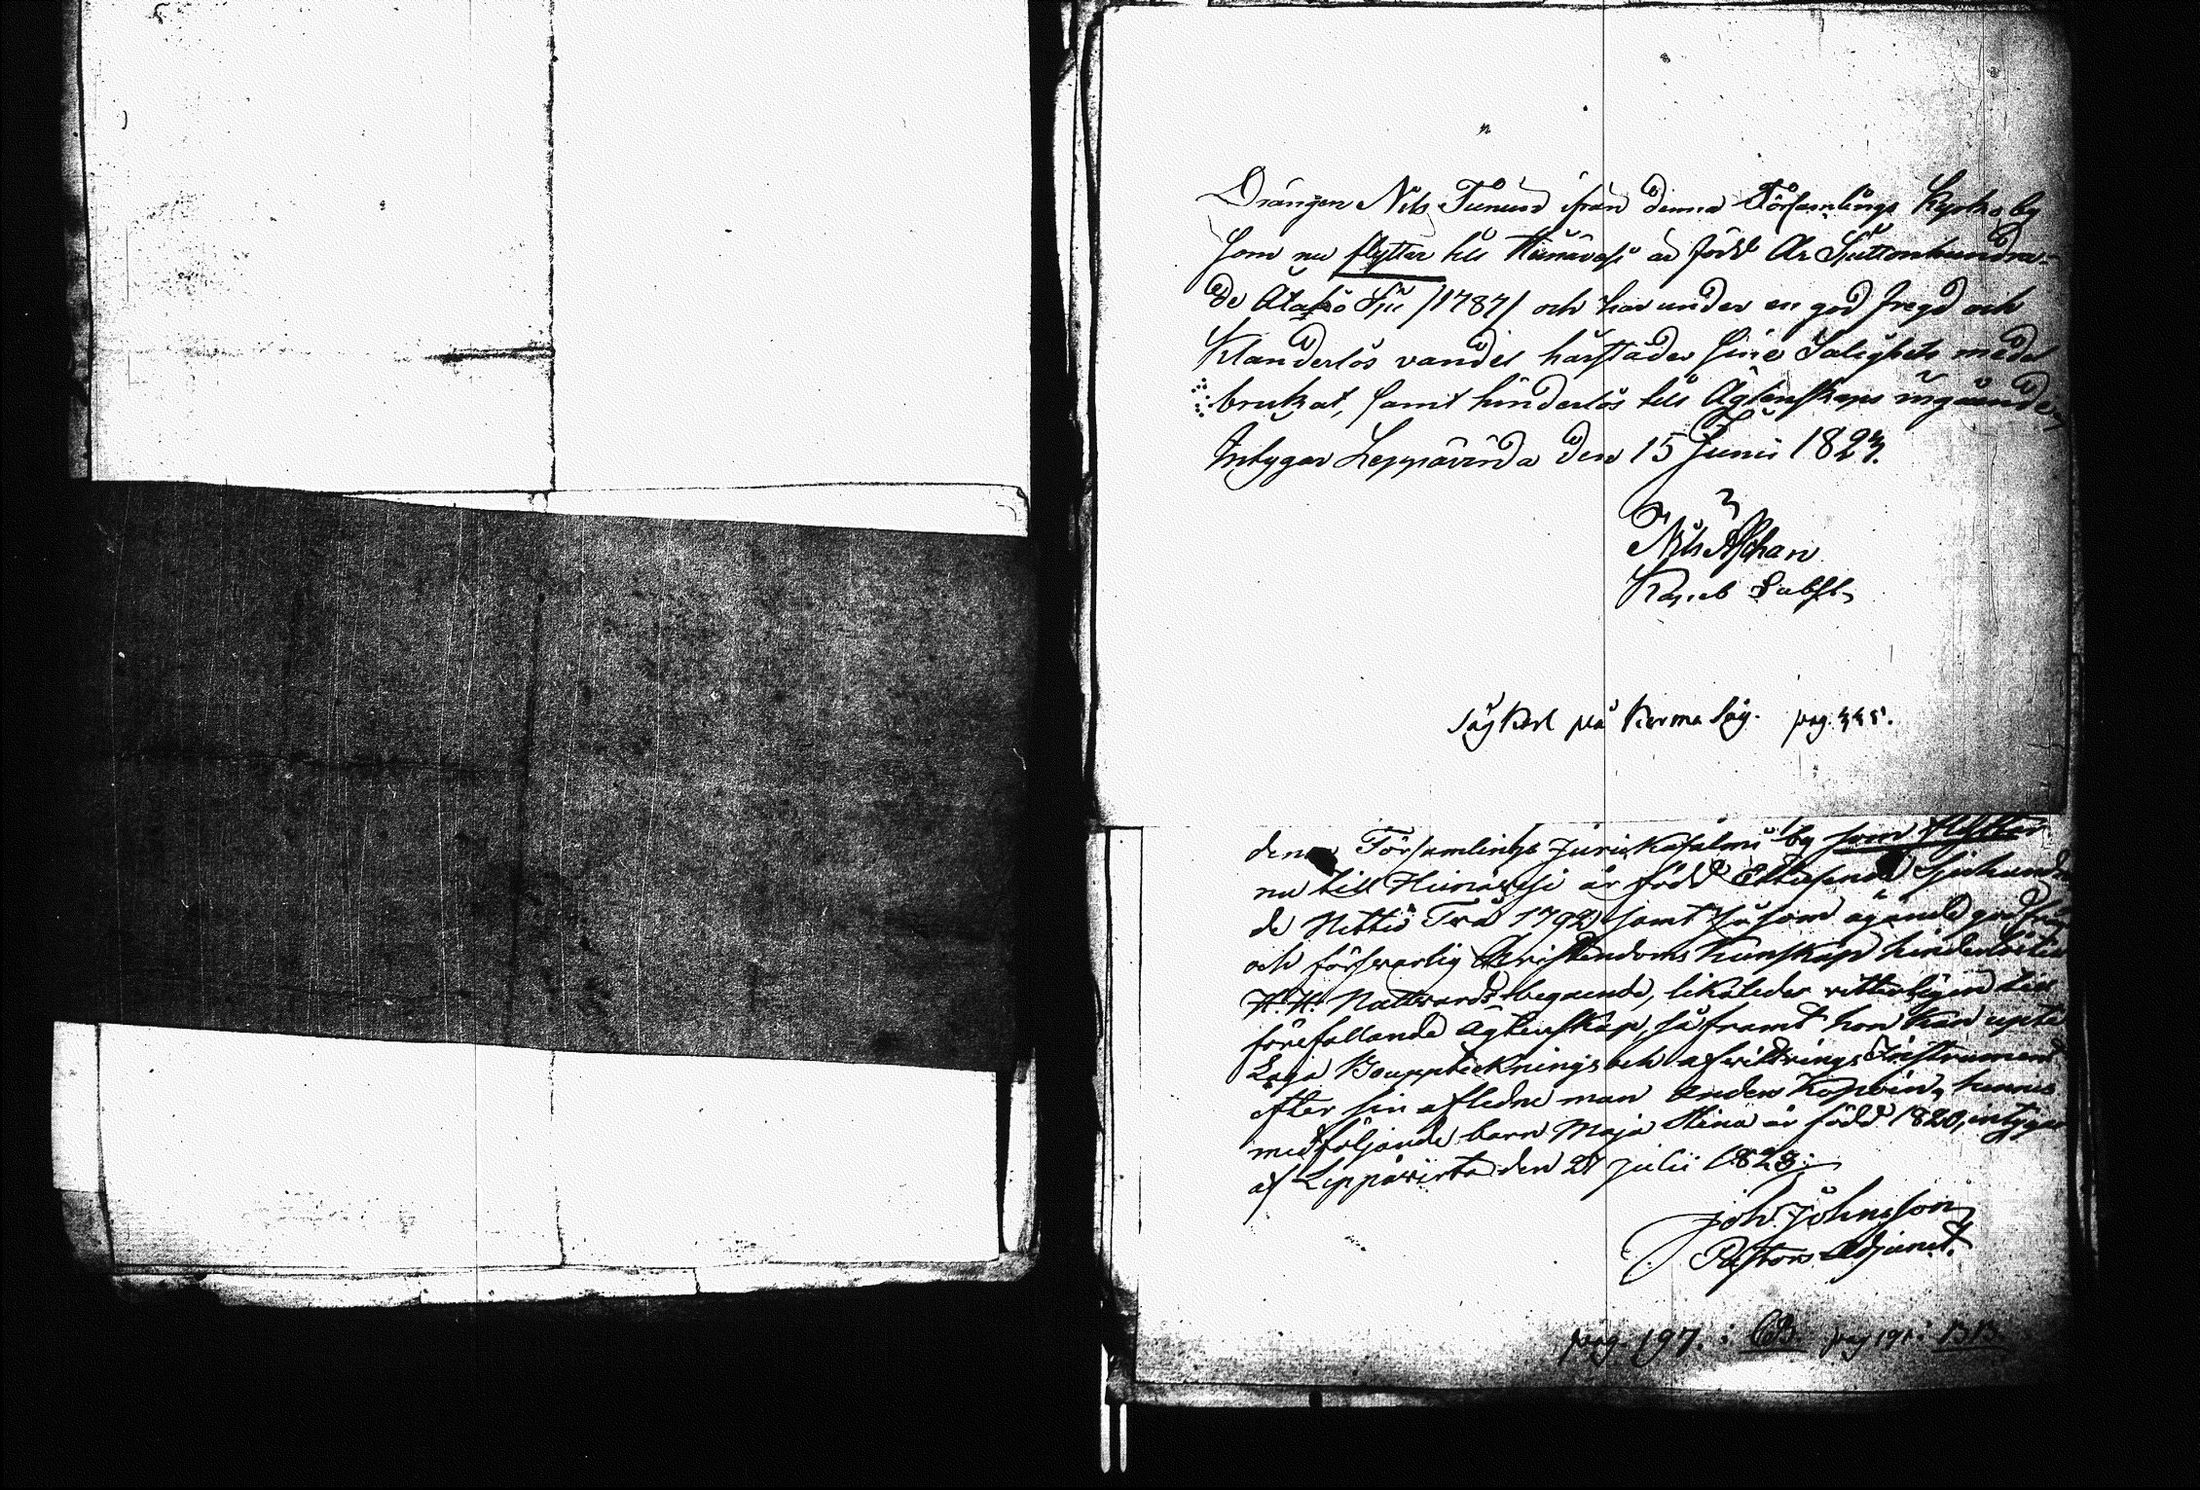 Drängen Nils Tunund från denna Församlings Kyrko by
som nu flyttar till Heinävesi är född År Sjuttonhundra-
de Åtatio Sju /1787/ och har under en god fregd och
Klanderlös vandel härstädes sine Salighets medel
brukat, samt hinderlös till Ägtenskaps ingående,
Intygar Leppävirda den 15 Junii 1823.
Nils Aschan
Kapell. Subst.
Sågkarl på Karma Såg. pag. 445.
denna Församlings Jurickasalmi by som flyttar
nu till Heinävesi är född Ettusende Sjuhundra
de Nittio Två 1792 samt såsom ägande god frägd
och försvarlig Christendoms Kunskap hinderlös till
H. H. Nattvards begaende, likaledes vitterligen till
förefallande Ägtenskap, så framt hon kan upte
Laga Boupptecknings och afvittrings Instrument
efter sin aflidne man Anders Kopoin, hennes
medföljande barn Maja Stina är född 1820, intygar
af Leppävirta den 27 Julii 1823.
Joh. Johnsson
Pastors Adjunct.
pag. 197. : pag 191 :